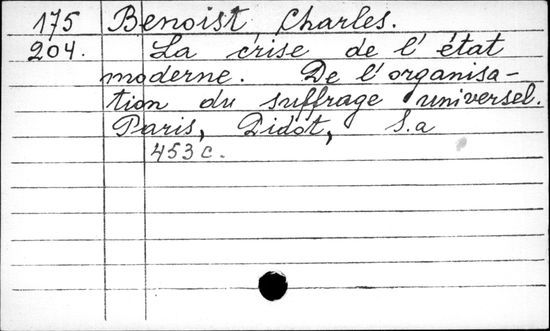 175 Benoist Charles.
204. La crise de l'état
moderne. De l'organisa-
tion du suffrage universel.
Paris, Didot, S.a
453 c.